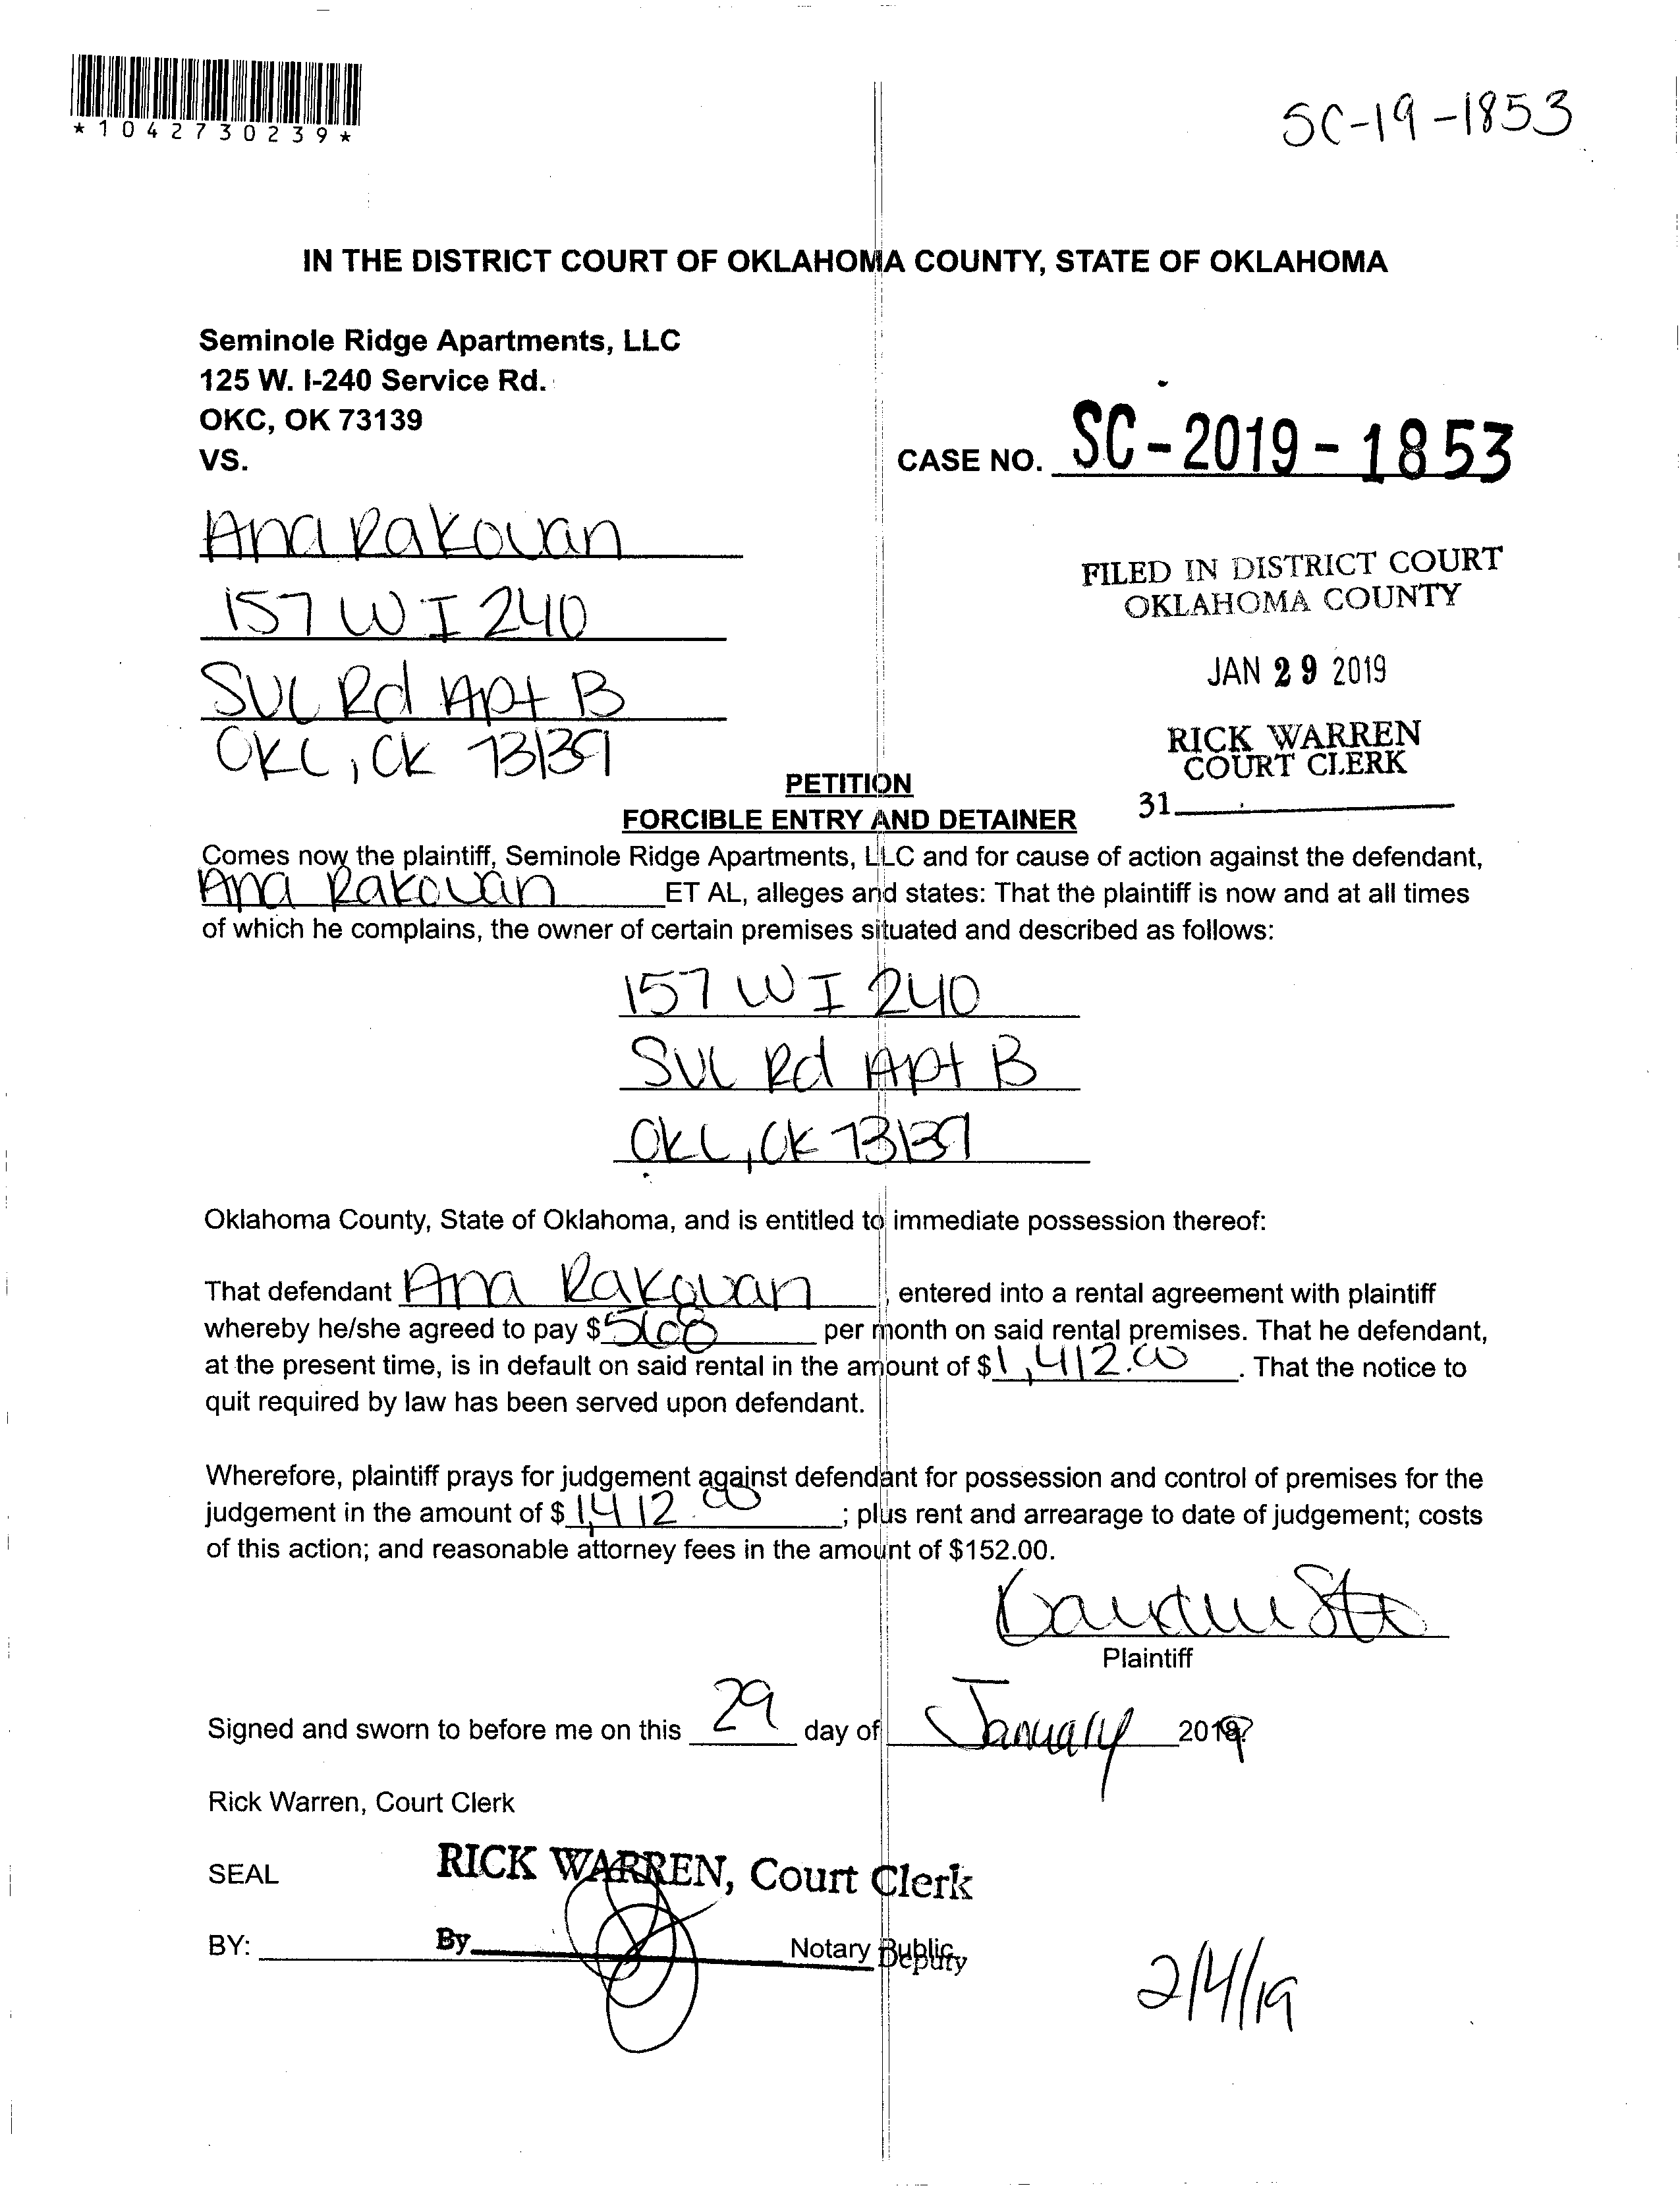 *1042730239*
SC-19-1853
IN THE DISTRICT COURT OF OKLAHOMA COUNTY, STATE OF OKLAHOMA
Seminole Ridge Apartments, LLC
125 W. I-240 Service Rd.
OKC, OK 73139
VS.
CASE NO. SC-2019-1853
Ana Rakovan
157 W I 240
SVC Rd Apt B
OKC, OK 73139
FILED IN DISTRICT COURT
OKLAHOMA COUNTY
JAN 29 2019
RICK WARREN
COURT CLERK
31
PETITION
FORCIBLE ENTRY AND DETAINER
Comes now the plaintiff, Seminole Ridge Apartments, LLC and for cause of action against the defendant,
Ana Rakovan ET AL, alleges and states: That the plaintiff is now and at all times
of which he complains, the owner of certain premises situated and described as follows:
157 W I 240
SVC Rd Apt B
OKC, OK 73139
Oklahoma County, State of Oklahoma, and is entitled to immediate possession thereof:
That defendant Ana Rakovan, entered into a rental agreement with plaintiff
whereby he/she agreed to pay $568 per month on said rental premises. That he defendant,
at the present time, is in default on said rental in the amount of $1,412.00. That the notice to
quit required by law has been served upon defendant.
Wherefore, plaintiff prays for judgement against defendant for possession and control of premises for the
judgement in the amount of $1,412.00; plus rent and arrearage to date of judgement; costs
of this action; and reasonable attorney fees in the amount of $152.00.
Plaintiff
Signed and sworn to before me on this 29 day of January 2019
Rick Warren, Court Clerk
SEAL
RICK WARREN, Court Clerk
BY: By Notary Public Deputy
2/4/19